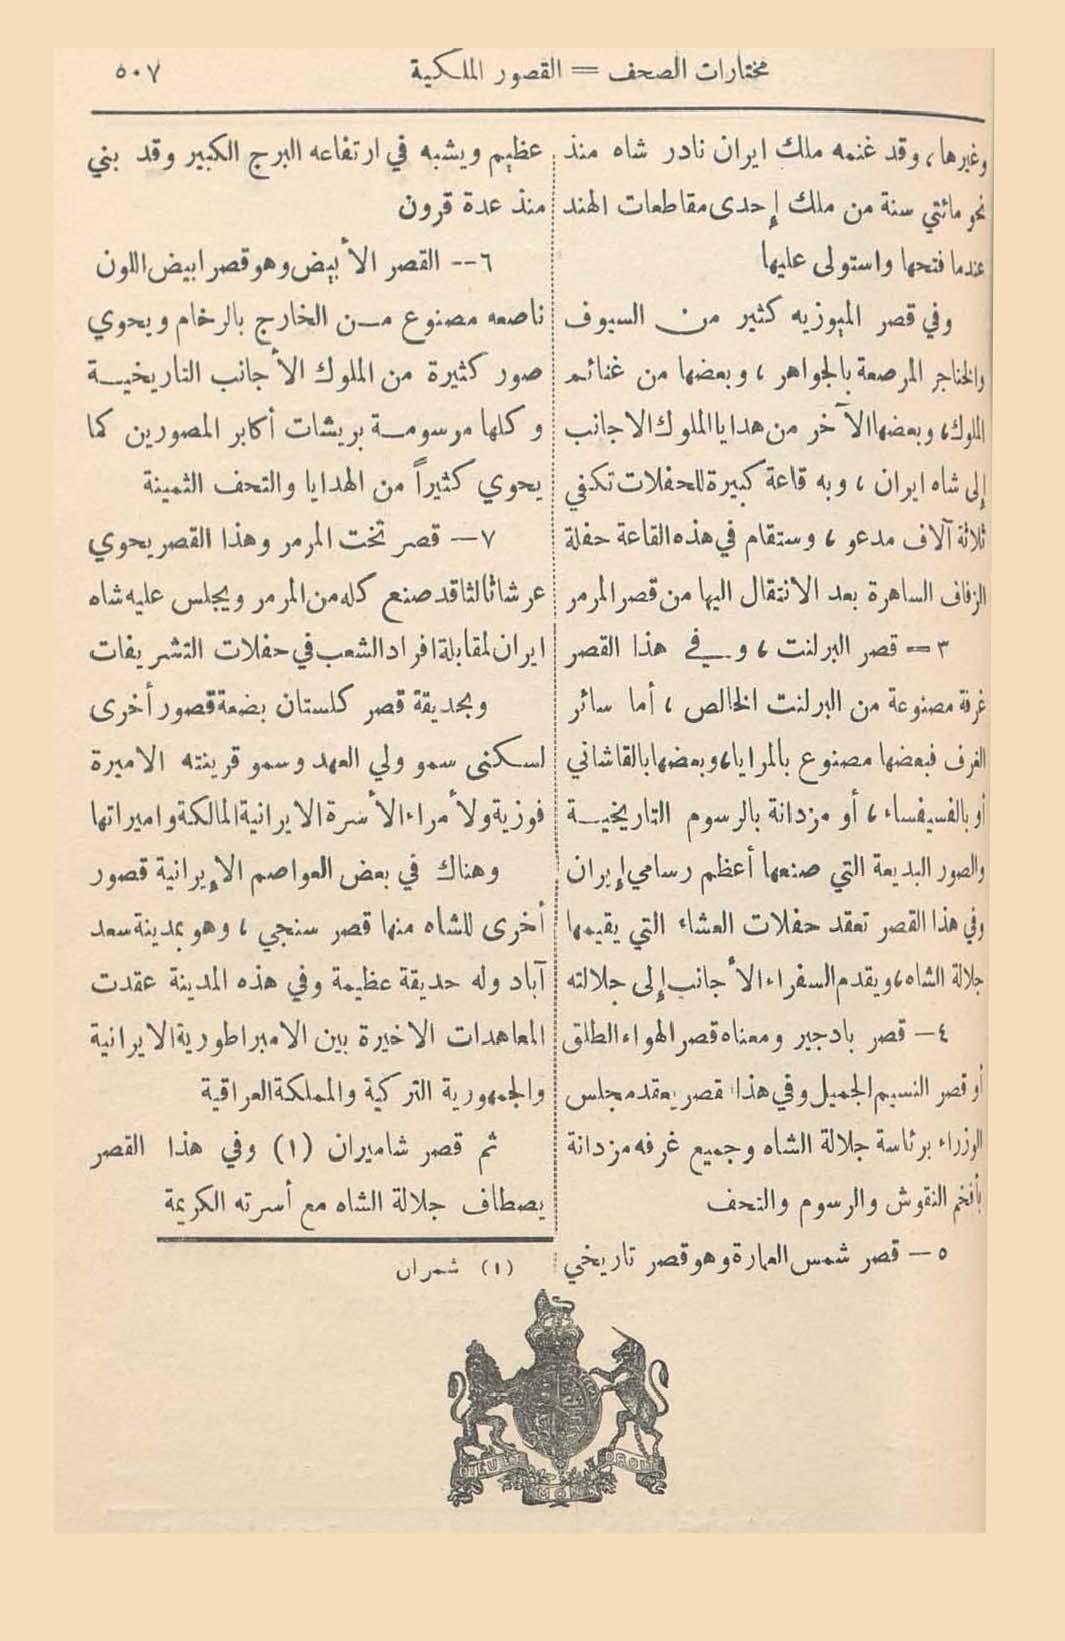 مختارات الصحف = القصور الملكية
٥٠٧
وغيرها، وقد غنمه ملك ايران نادر شاه منذ
نحو مائتي سنة من ملك إحدى مقاطعات الهند
عندما فتحها واستولى عليها
وفي قصر الميوزيه كثير من السيوف
والخناجر المرصعة بالجواهر، وبعضها من غنائم
الملوك، وبعضها الآخر من هدايا الملوك الاجانب
إلى شاه ايران، وبه قاعة كبيرة للحفلات تكفي
ثلاثة آلاف مدعو، وستقام في هذه القاعة حفلة
الزفاف الساهرة بعد الانتقال اليها من قصر المرمر
٣ = قصر البرلنت، وفي هذا القصر
غرفة مصنوعة من البرلنت الخالص، أما سائر
الغرف فبعضها مصنوع بالمرايا، وبعضها بالقاشاني
أو بالفسيفساء، أو مزدانة بالرسوم التاريخية
والصور البديعة التي صنعها أعظم رسامي إيران
وفي هذا القصر تعقد حفلات العشاء التي يقيمها
جلالة الشاه، ويقدم السفراء الأجانب إلى جلالته
٤ – قصر بادجير ومعناه قصر الهواء الطلق
أو قصر النسيم الجميل وفي هذا قصر يعقد مجلس
الوزراء برئاسة جلالة الشاه وجميع غرفه مزدانة
بأفخم النقوش والرسوم والتحف
٥ – قصر شمس العمارة وهو قصر تاريخي
عظيم ويشبه في ارتفاعه البرج الكبير وقد بني
منذ عدة قرون
٦ -- القصر الأبيض وهو قصر ابيض اللون
ناصعه مصنوع من الخارج بالرخام ويحوي
صور كثيرة من الملوك الأجانب التاريخية
وكلها مرسومة بريشات أكابر المصورين كما
يحوي كثيراً من الهدايا والتحف الثمينة
٧ – قصر تخت المرمر وهذا القصر يحوي
عرشا ثالثا قد صنع كله من المرمر ويجلس عليه شاه
ايران لمقابلة افراد الشعب في حفلات التشريفات
وبحديقة قصر كلستان بضعة قصور أخرى
لسكنى سمو ولي العهد وسمو قرينته الاميرة
فوزية ولأمراء الأسرة الايرانية المالكة واميراتها
وهناك في بعض العواصم الإيرانية قصور
أخرى للشاه منها قصر سنجي، وهو بمدينة سعد
آباد وله حديقة عظيمة وفي هذه المدينة عقدت
المعاهدات الاخيرة بين الامبراطورية الايرانية
والجمهورية التركية والمملكة العراقية
ثم قصر شاميران (١) وفي هذا القصر
يصطاف جلالة الشاه مع أسرته الكريمة
(١) شمران
DIEU ET
MON
DROIT